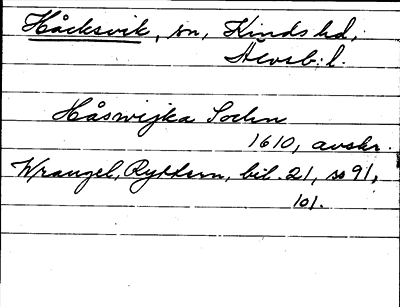 Håcksvik, sn, Kinds hd,
Älvsb. l.
Håswijka Sochn
1610, avskr.
Wrangel, Ryttern, bil. 21, ss 91,
101.